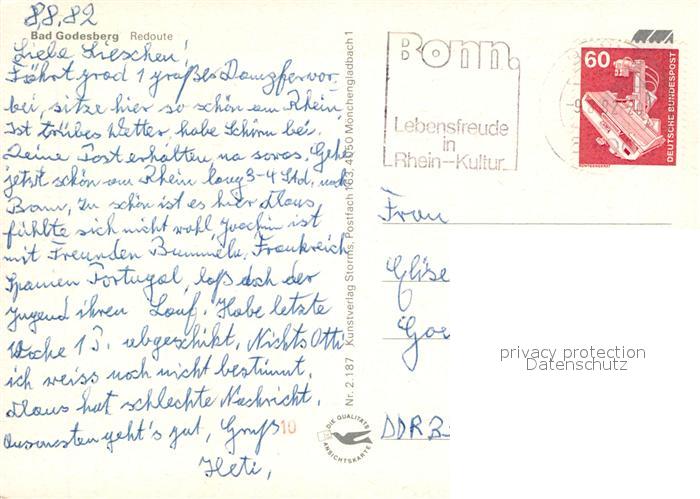 8,8,82
Bad Godesberg Redoute
Liebe Lieschen!
Fährt grad 1 großer Dampfer vor,
bei, sitze hier so schön am Rhein
Ist trübes Wetter, habe Schirm bei.
Deine Post erhalten, na sowas, Geh
jetzt schön am Rhein lang 3-4 Std, nach
Bonn, Zu schön ist es hier Klaus,
fühlte sich nicht wohl Joachim ist
mit Freunden Bummeln, Frankreich
Spanien Portugal, laß doch der
Jugend ihren Lauf. Habe letzte
Woche 1 P. abgeschikt, Nichts Otti
ich weiss noch nicht bestimmt,
Klaus hat schlechte Nachricht,
Ansonsten geht's gut, Gruß
10
Heti,
Nr. 2.187 Kunstverlag Storms, Postfach 163, 4050 Mönchengladbach 1
DIE QUALITÄTS
ANSICHTSKARTE
Bonn.
Lebensfreude
in
Rhein-Kultur.
60
DEUTSCHE BUNDESPOST
Frau
Elise
Goe
DDR B
privacy protection
Datenschutz